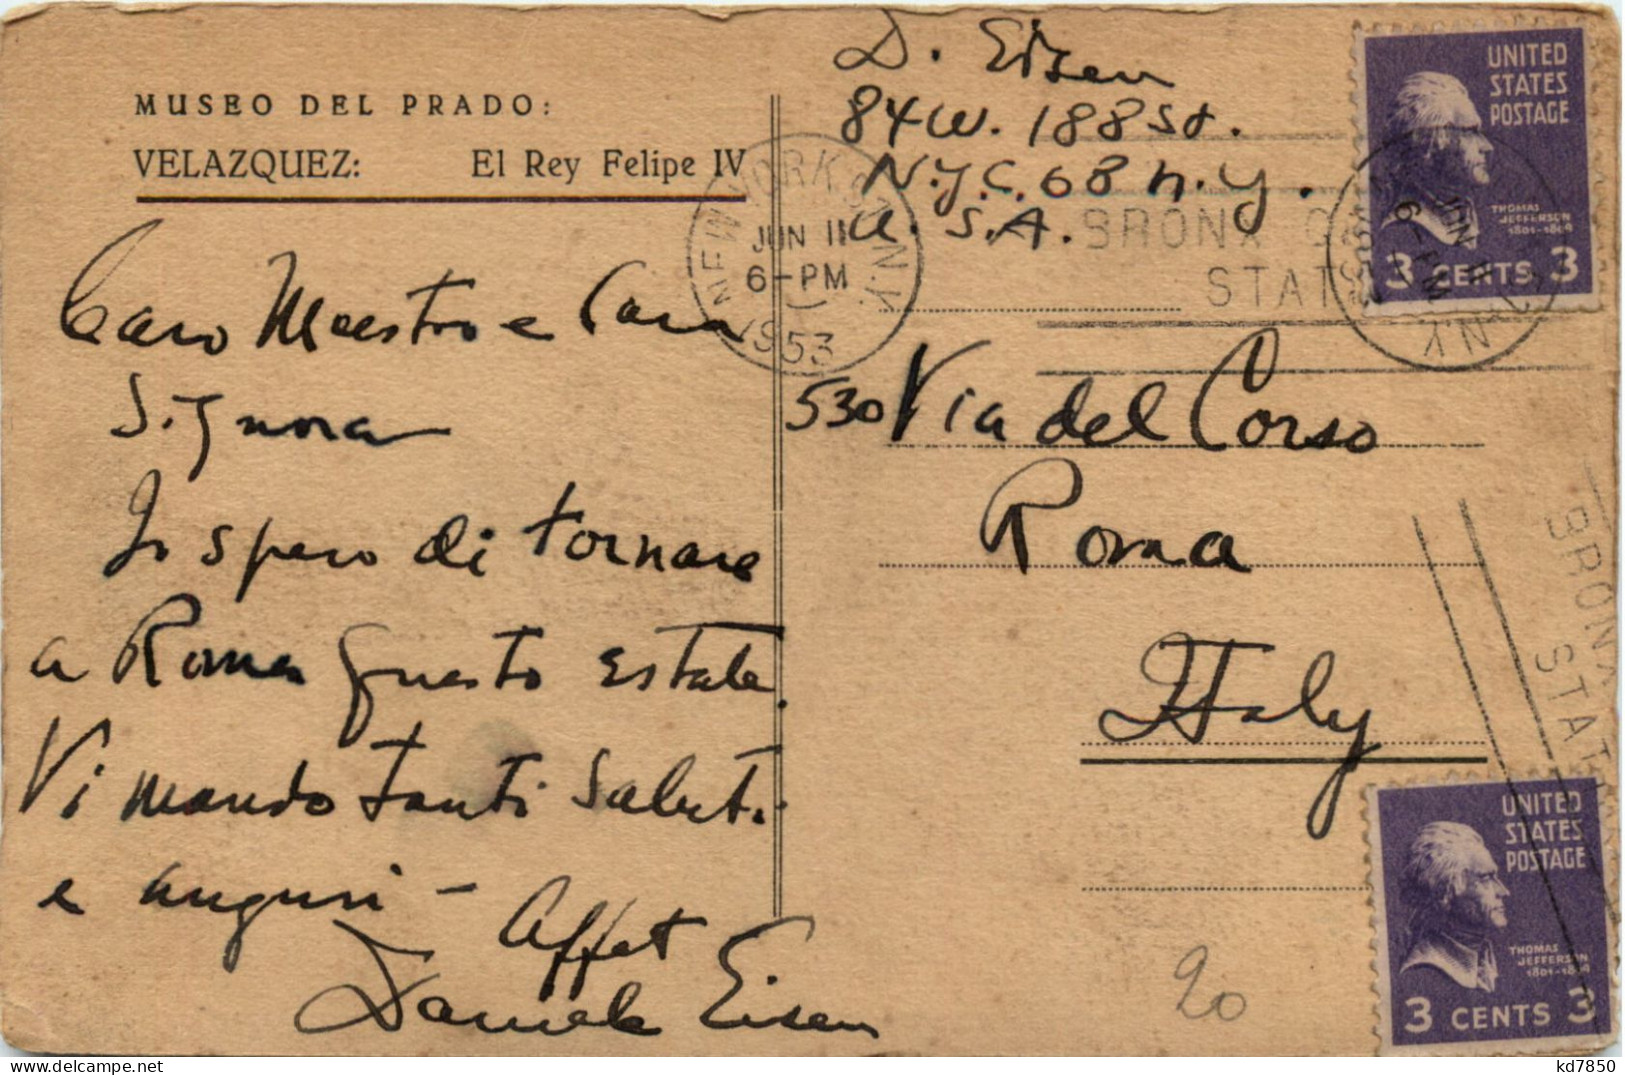 MUSEO DEL PRADO:
VELAZQUEZ: El Rey Felipe IV
Caro Maestro e Cara
Signora
Io spero di tornare
a Roma questo estate.
Vi mando tanti saluti
e auguri –
Affet
Daniele Eisen
D. Eisen
84 W. 188 St.
N.Y.C. 68 N.Y.
U.S.A.
530 Via del Corso
Roma
Italy
20
NEW YORK, N.Y.
JUN 11
6-PM
1953
BRONX
STAT
UNITED
STATES
POSTAGE
THOMAS
JEFFERSON
1801-1809
3 CENTS 3
JUN 11
6-PM
1953
N.Y.
BRONX
STAT
UNITED
STATES
POSTAGE
THOMAS
JEFFERSON
1801-1809
3 CENTS 3
kd7850